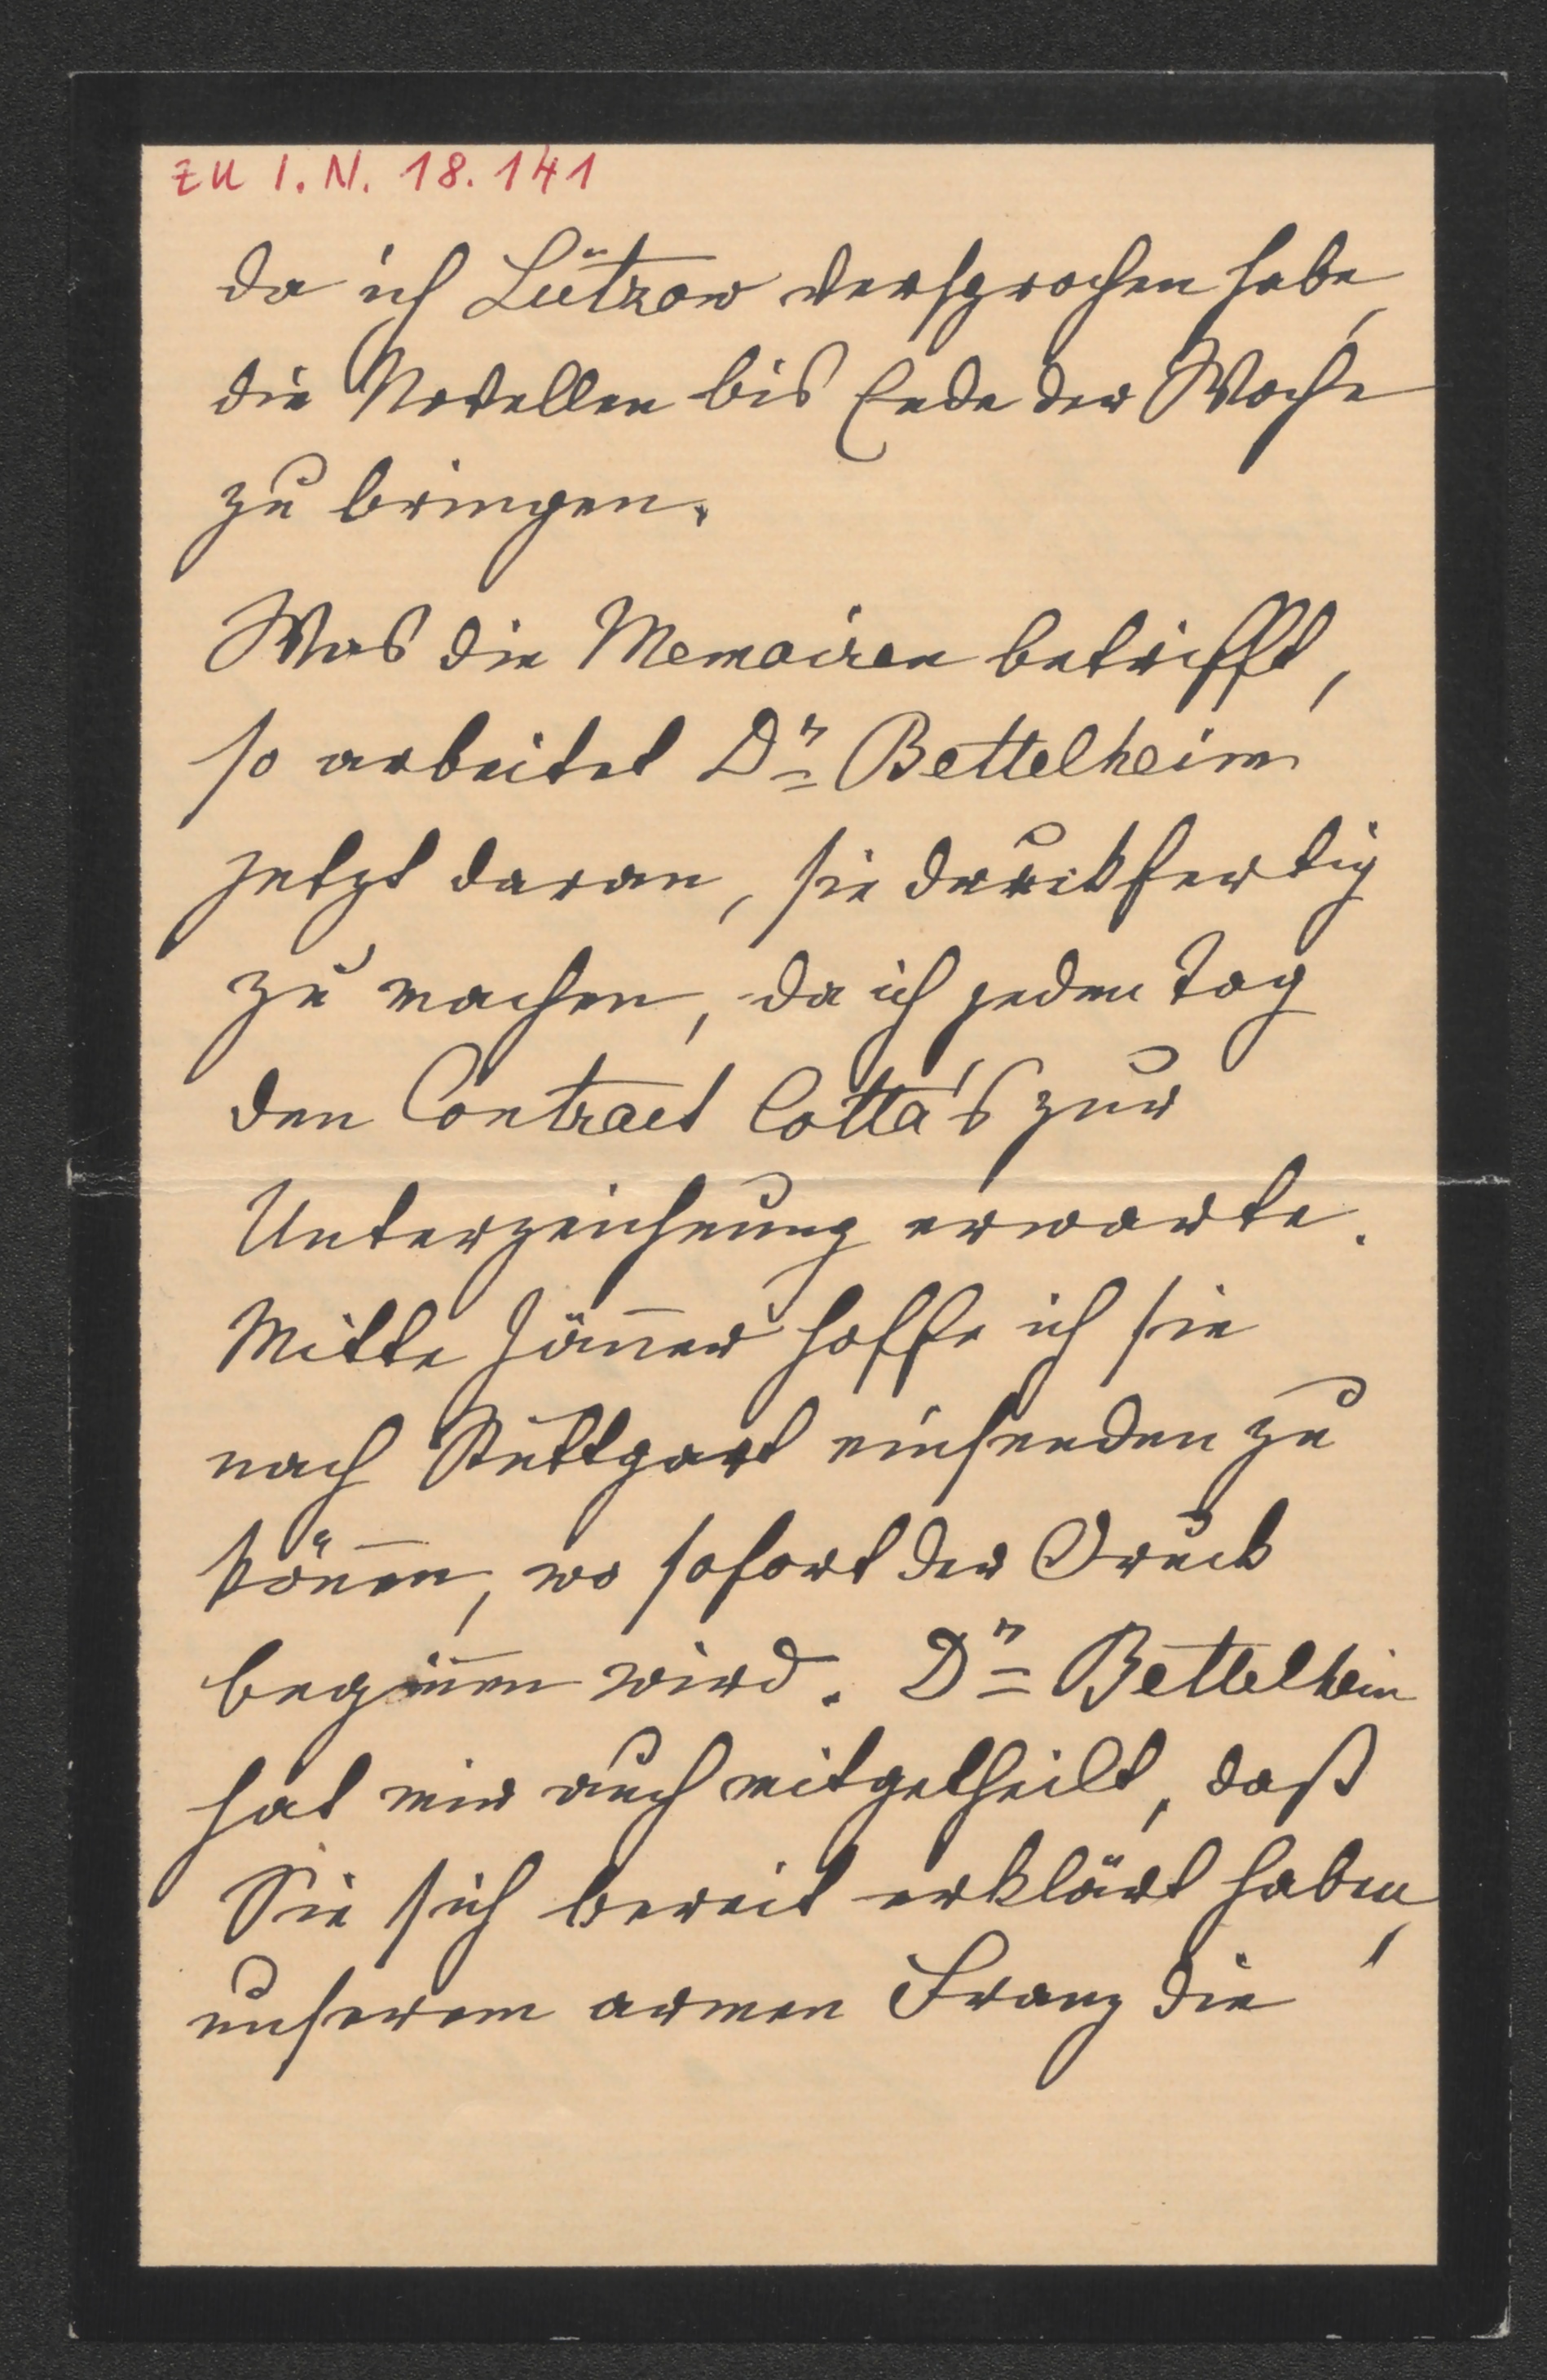 zu I. N. 18.141
da ich Lützow versprochen habe,
die Novellen bis Ende der Woche
zu bringen.
Was die Memoiren betrifft,
so arbeitet Dr Bettelheim
jetzt daran, sie druckfertig
zu machen, da ich jeden Tag
den Contract Cotta's zur
Unterzeichnung erwarte.
Mitte Jän̄er hoffe ich sie
nach Stuttgart einsenden zu
kön̄en, wo sofort der Druck
begin̄en wird. Dr Bettelheim
hat mir auch mitgetheilt, daß
Sie sich bereit erklärt haben,
unserem armen Franz die